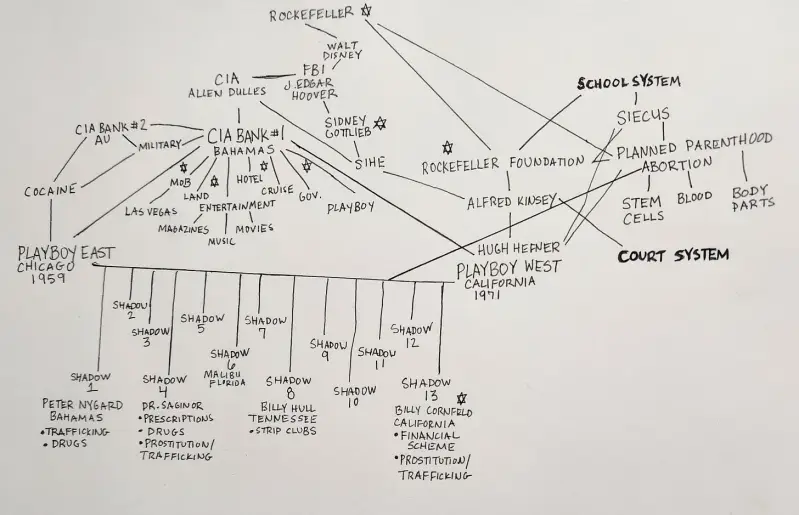 ROCKEFELLER ✡
WALT
DISNEY
FBI
J. EDGAR
HOOVER
CIA
ALLEN DULLES
SCHOOL SYSTEM
SIDNEY
GOTTLIEB ✡
SIECUS
CIA BANK #2
AU
MILITARY
CIA BANK #1
BAHAMAS
SIHE
✡
ROCKEFELLER FOUNDATION
PLANNED PARENTHOOD
ABORTION
COCAINE
✡
MOB
✡
LAND
HOTEL
✡
CRUISE
✡
GOV.
PLAYBOY
LAS VEGAS
ENTERTAINMENT
MAGAZINES
MUSIC
MOVIES
ALFRED KINSEY
STEM
CELLS
BLOOD
BODY
PARTS
PLAYBOY EAST
CHICAGO
1959
HUGH HEFNER
PLAYBOY WEST
CALIFORNIA
1971
COURT SYSTEM
SHADOW
1
PETER NYGARD
BAHAMAS
• TRAFFICKING
• DRUGS
SHADOW
2
SHADOW
3
SHADOW
4
DR. SAGINOR
• PRESCRIPTIONS
• DRUGS
• PROSTITUTION/
TRAFFICKING
SHADOW
5
SHADOW
6
MALIBU
FLORIDA
SHADOW
7
SHADOW
8
BILLY HULL
TENNESSEE
• STRIP CLUBS
SHADOW
9
SHADOW
10
SHADOW
11
SHADOW
12
SHADOW
13 ✡
BILLY CORNFELD
CALIFORNIA
• FINANCIAL
SCHEME
• PROSTITUTION/
TRAFFICKING